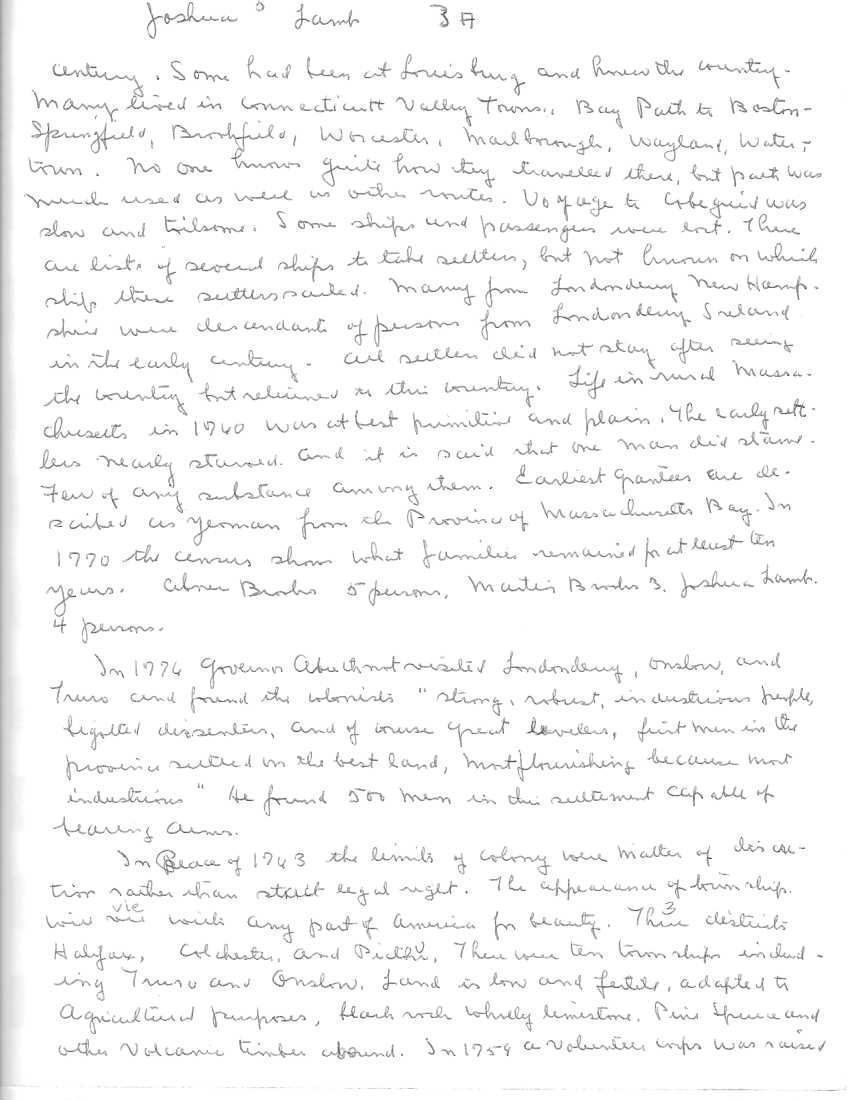 Joshua 3 Lamb 3A
century. Some had been at Louisburg and knew the country.
Many lived in Connecticutt Valley Towns. Bay Path to Boston-
Springfield, Brookfield, Worcester, Marlborough, Wayland, Water-
town. No one knows quite how they travelled there, but path was
much used as well as other routes. Voyage to Cobequid was
slow and toilsome. Some ships and passengers were lost. There
are lists of several ships to take settlers, but not known on which
ship these settlers sailed. Many from Londonderry New Hamp-
shire were descendants of persons from Londonderry Ireland
in the early century. All settlers did not stay after seeing
the country but returned to this country. Life in rural Massa-
chusetts in 1760 was at best primitive and plain. The early sett-
lers nearly starved. And it is said that one man did starve.
Few of any substance among them. Earliest grantees are de-
scribed as yeoman from the Province of Massachusetts Bay. In
1770 the census shows what families remained for at least ten
years. Abner Brooks 5 persons, Martin Brooks 3. Joshua Lamb.
4 persons.
In 1774 Governor visited Londonderry, Onslow, and
Truro and found the colonists "strong, robust, industrious people,
bigotted dissenters, and of course great levelers, first men in the
province settled on the best land, most flourishing because most
industrious" He found 500 men in this settlement capable of
bearing arms.
In Peace of 1763 the limits of colony were matter of discre-
tion rather than strict legal right. The appearance of township.
will vie with any part of America for beauty. 3 districts
Halifax, Colchester, and Pictou, There were ten townships includ-
ing Truro and Onslow. Land is low and fertile, adapted to
Agricultural purposes, black rock wholly limestone. Pine Spruce and
other Volcanic timber abound. In 1759 a volunteer corps was raised